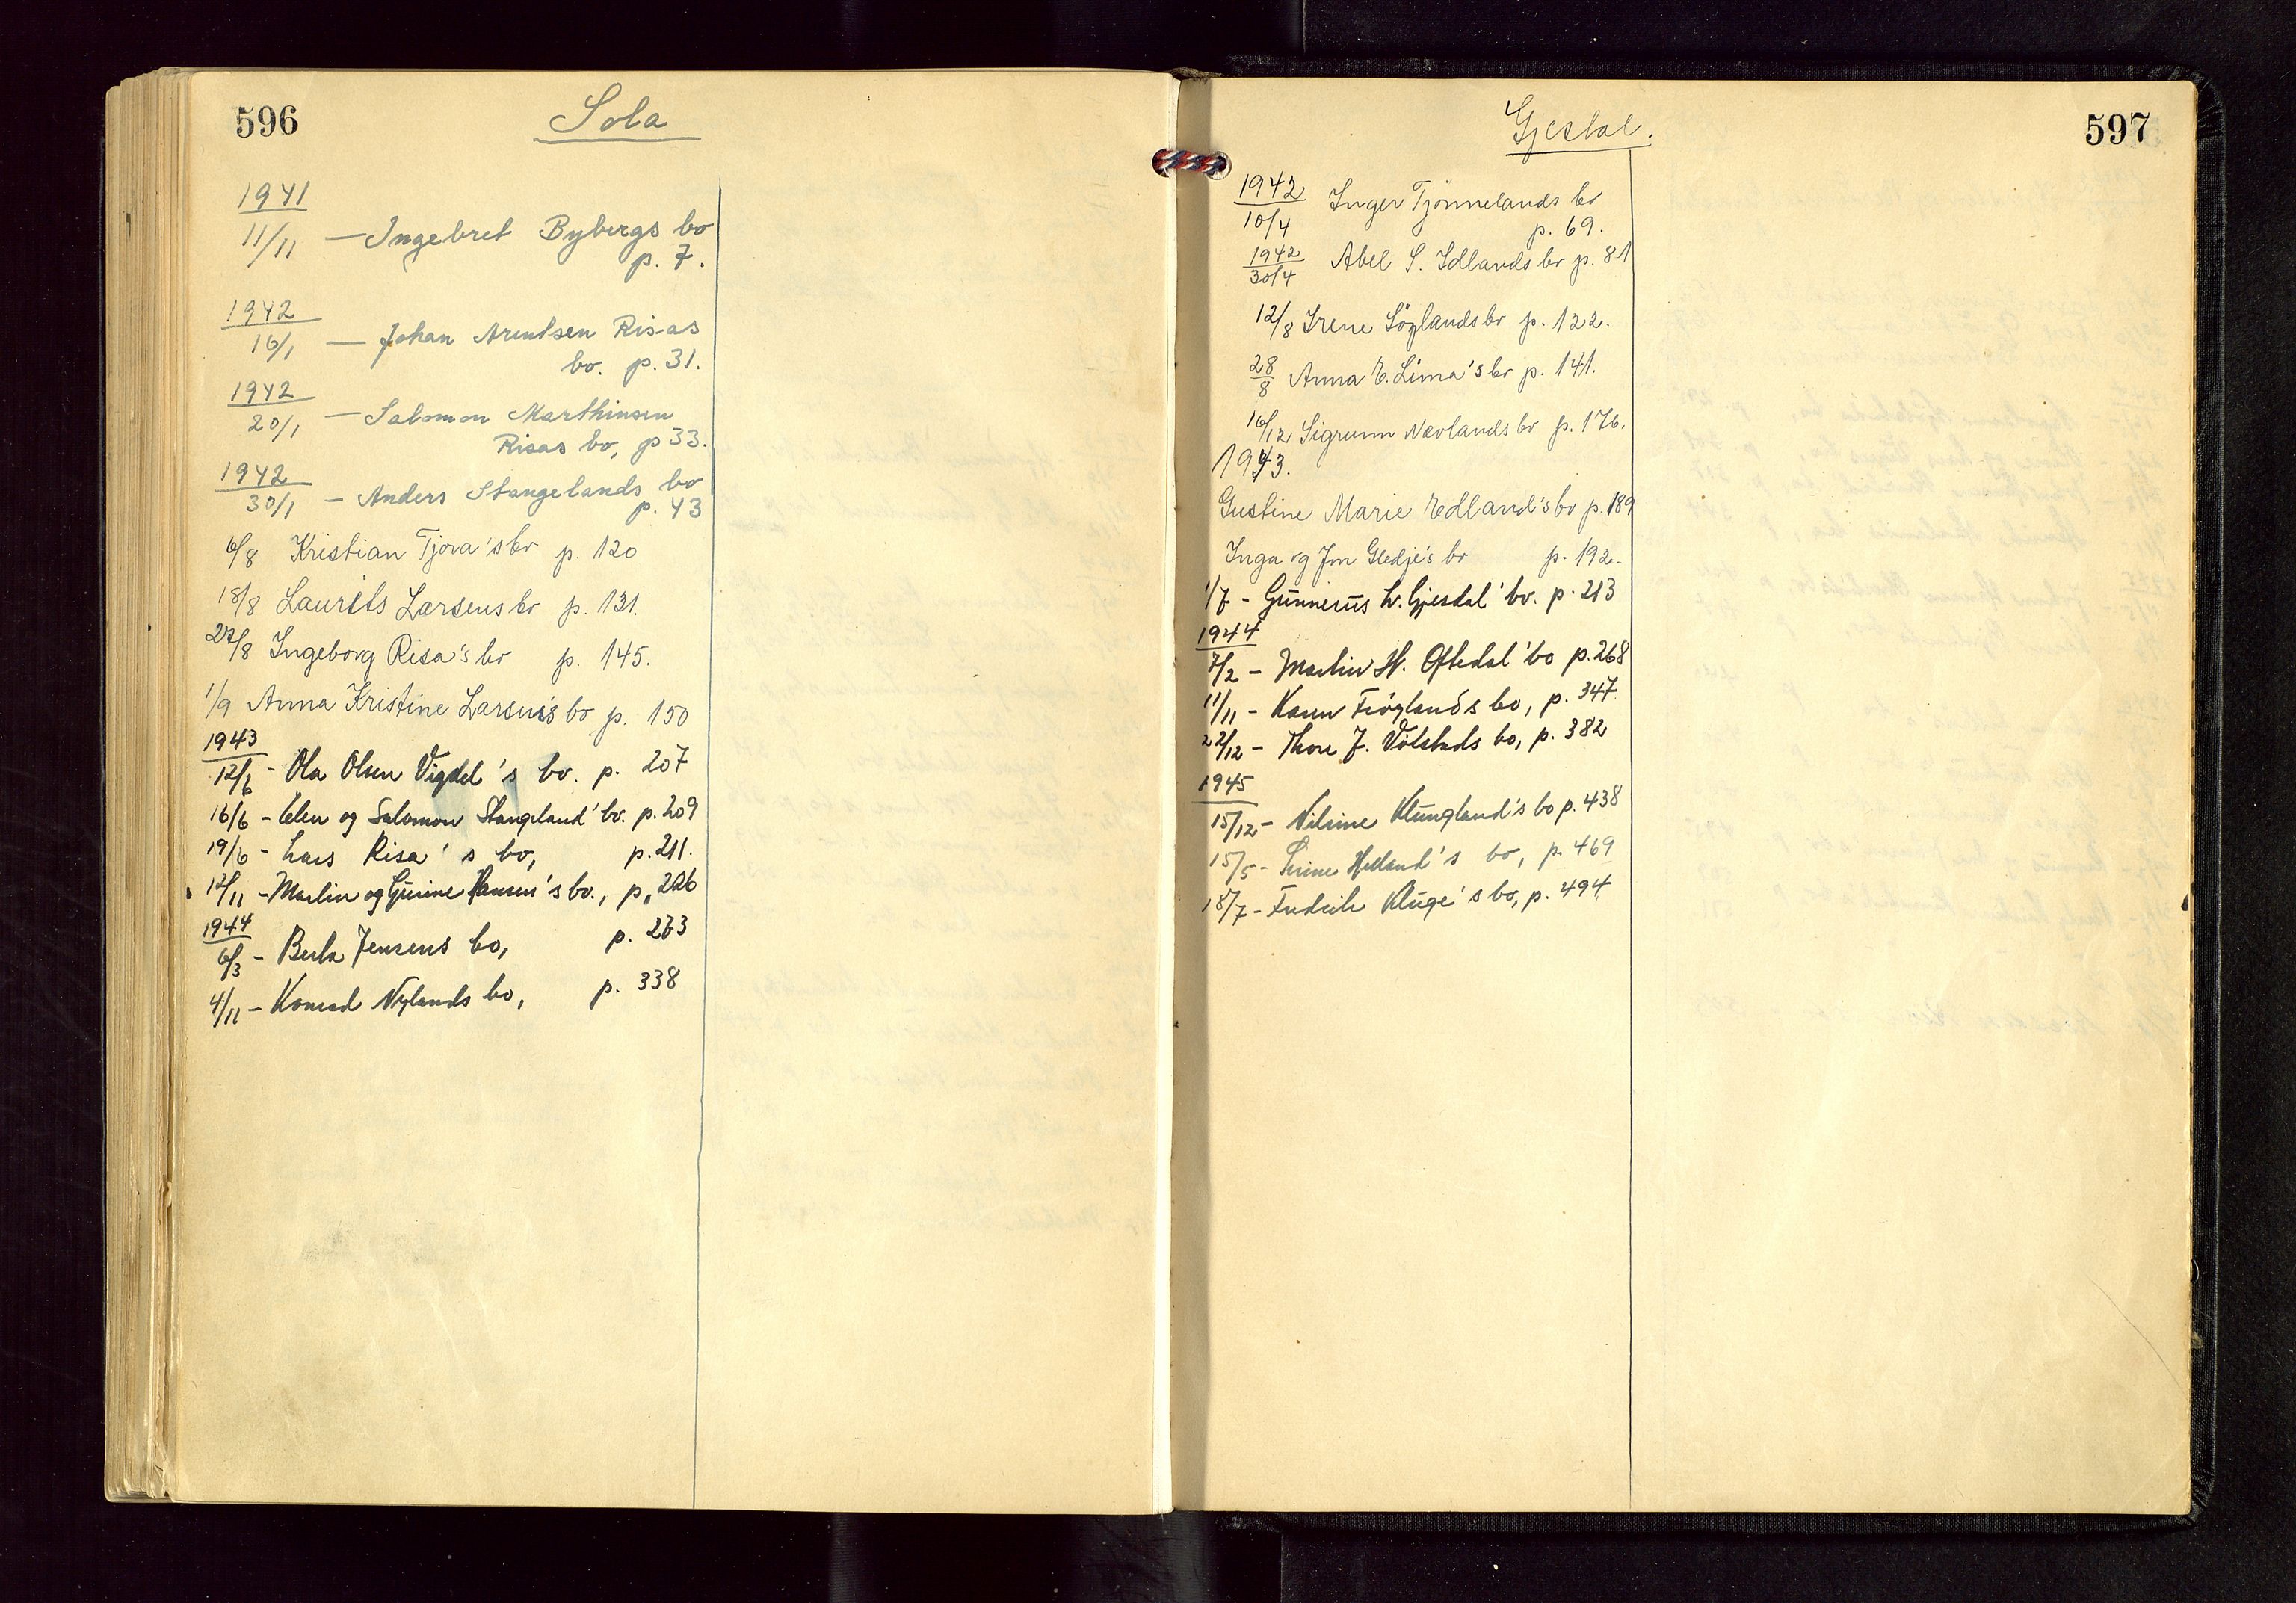 596
Sola
1941
11/11 — Ingebret Bybergs bo
p. 7.
1942
16/1 — Johan Arentsen Risas
bo. p. 31.
1942
20/1 — Salomon Marthinsen
Risas bo, p 33.
1942
30/1 — Anders Stangelands bo
p. 43
6/8 Kristian Tjora's bo p. 120
18/8 Laurits Larsens bo p. 131.
27/8 Ingeborg Risa's bo p. 145.
1/9 Anna Kristine Larsens bo p. 150
1943
12/6 - Ola Olsen Vigdel's bo. p. 207
16/6 - Elen og Salomon Stangeland' bo. p. 209
19/6 - Lars Risa's bo, p. 211.
12/11 - Martin og Gurine Hansen's bo., p.
1944
6/3 - Berta Jensens bo, p. 273
4/11 - Konrad Nylands bo, p. 338
597
Gjesdal.
1942
10/4 Inger Tjönnelands bo
p. 69.
1942
30/4 Abel S. Idlands bo p. 81
12/8 Irene Söylands bo p. 122.
28/8 Anna E. Lima's bo p. 141.
16/12 Sigrunn Nævlands bo p. 176.
1943.
Gustine Marie Edland's bo p. 189
Inga og Jon Gledje's bo p. 192.
1/7 - Gunnerus L. Gjesdal' bo. p. 213
1944
7/2 - Martin H. Oftedal' bo p. 268
11/11 - Karen Fröylands bo, p. 347.
22/12 - Thore J. Völstads bo, p. 382
1945
15/12 - Nilsine Klungland's bo p. 438
15/5 - Helland's bo, p. 469
18/7 - Fredrik Kluge's bo, p. 494